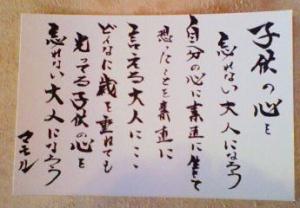 子供の心を
忘れない大人になろう
自分の心に素直に生きて
思ったことを素直に
言える大人に
どんなに歳を重ねても
光ってる子供の心を
忘れない大人になろう
マモル